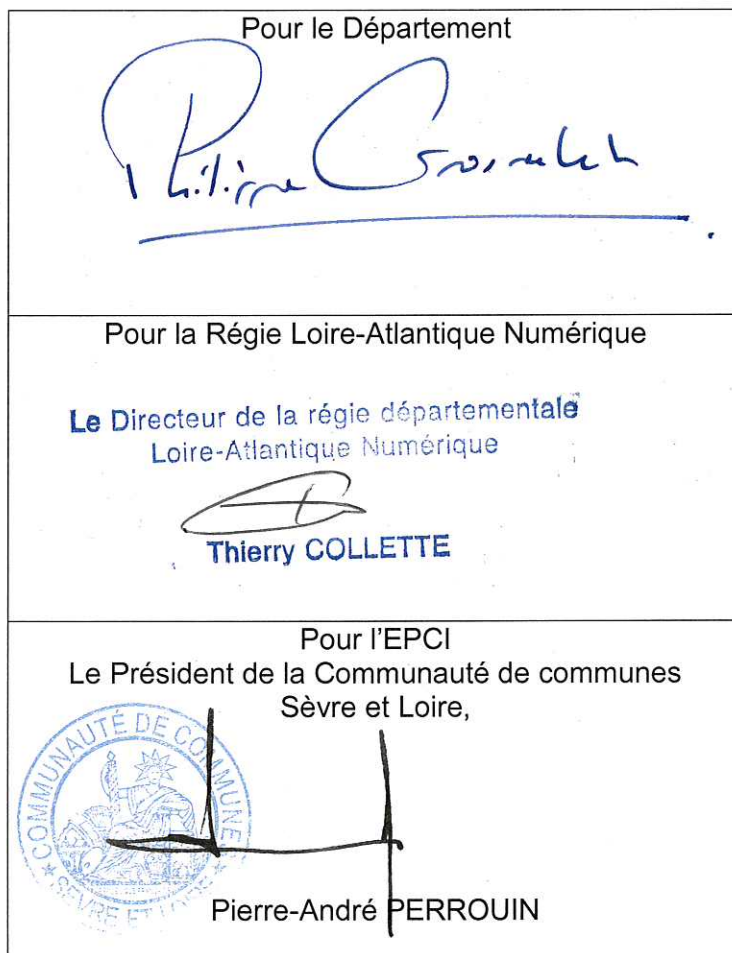 Pour le Département
Philippe
Pour la Régie Loire-Atlantique Numérique
Le Directeur de la régie départementale
Loire-Atlantique Numérique
Thierry COLLETTE
Pour l'EPCI
Le Président de la Communauté de communes
Sèvre et Loire,
COMMUNAUTÉ DE COMMUNES
SEVRE ET LOIRE
Pierre-André PERROUIN